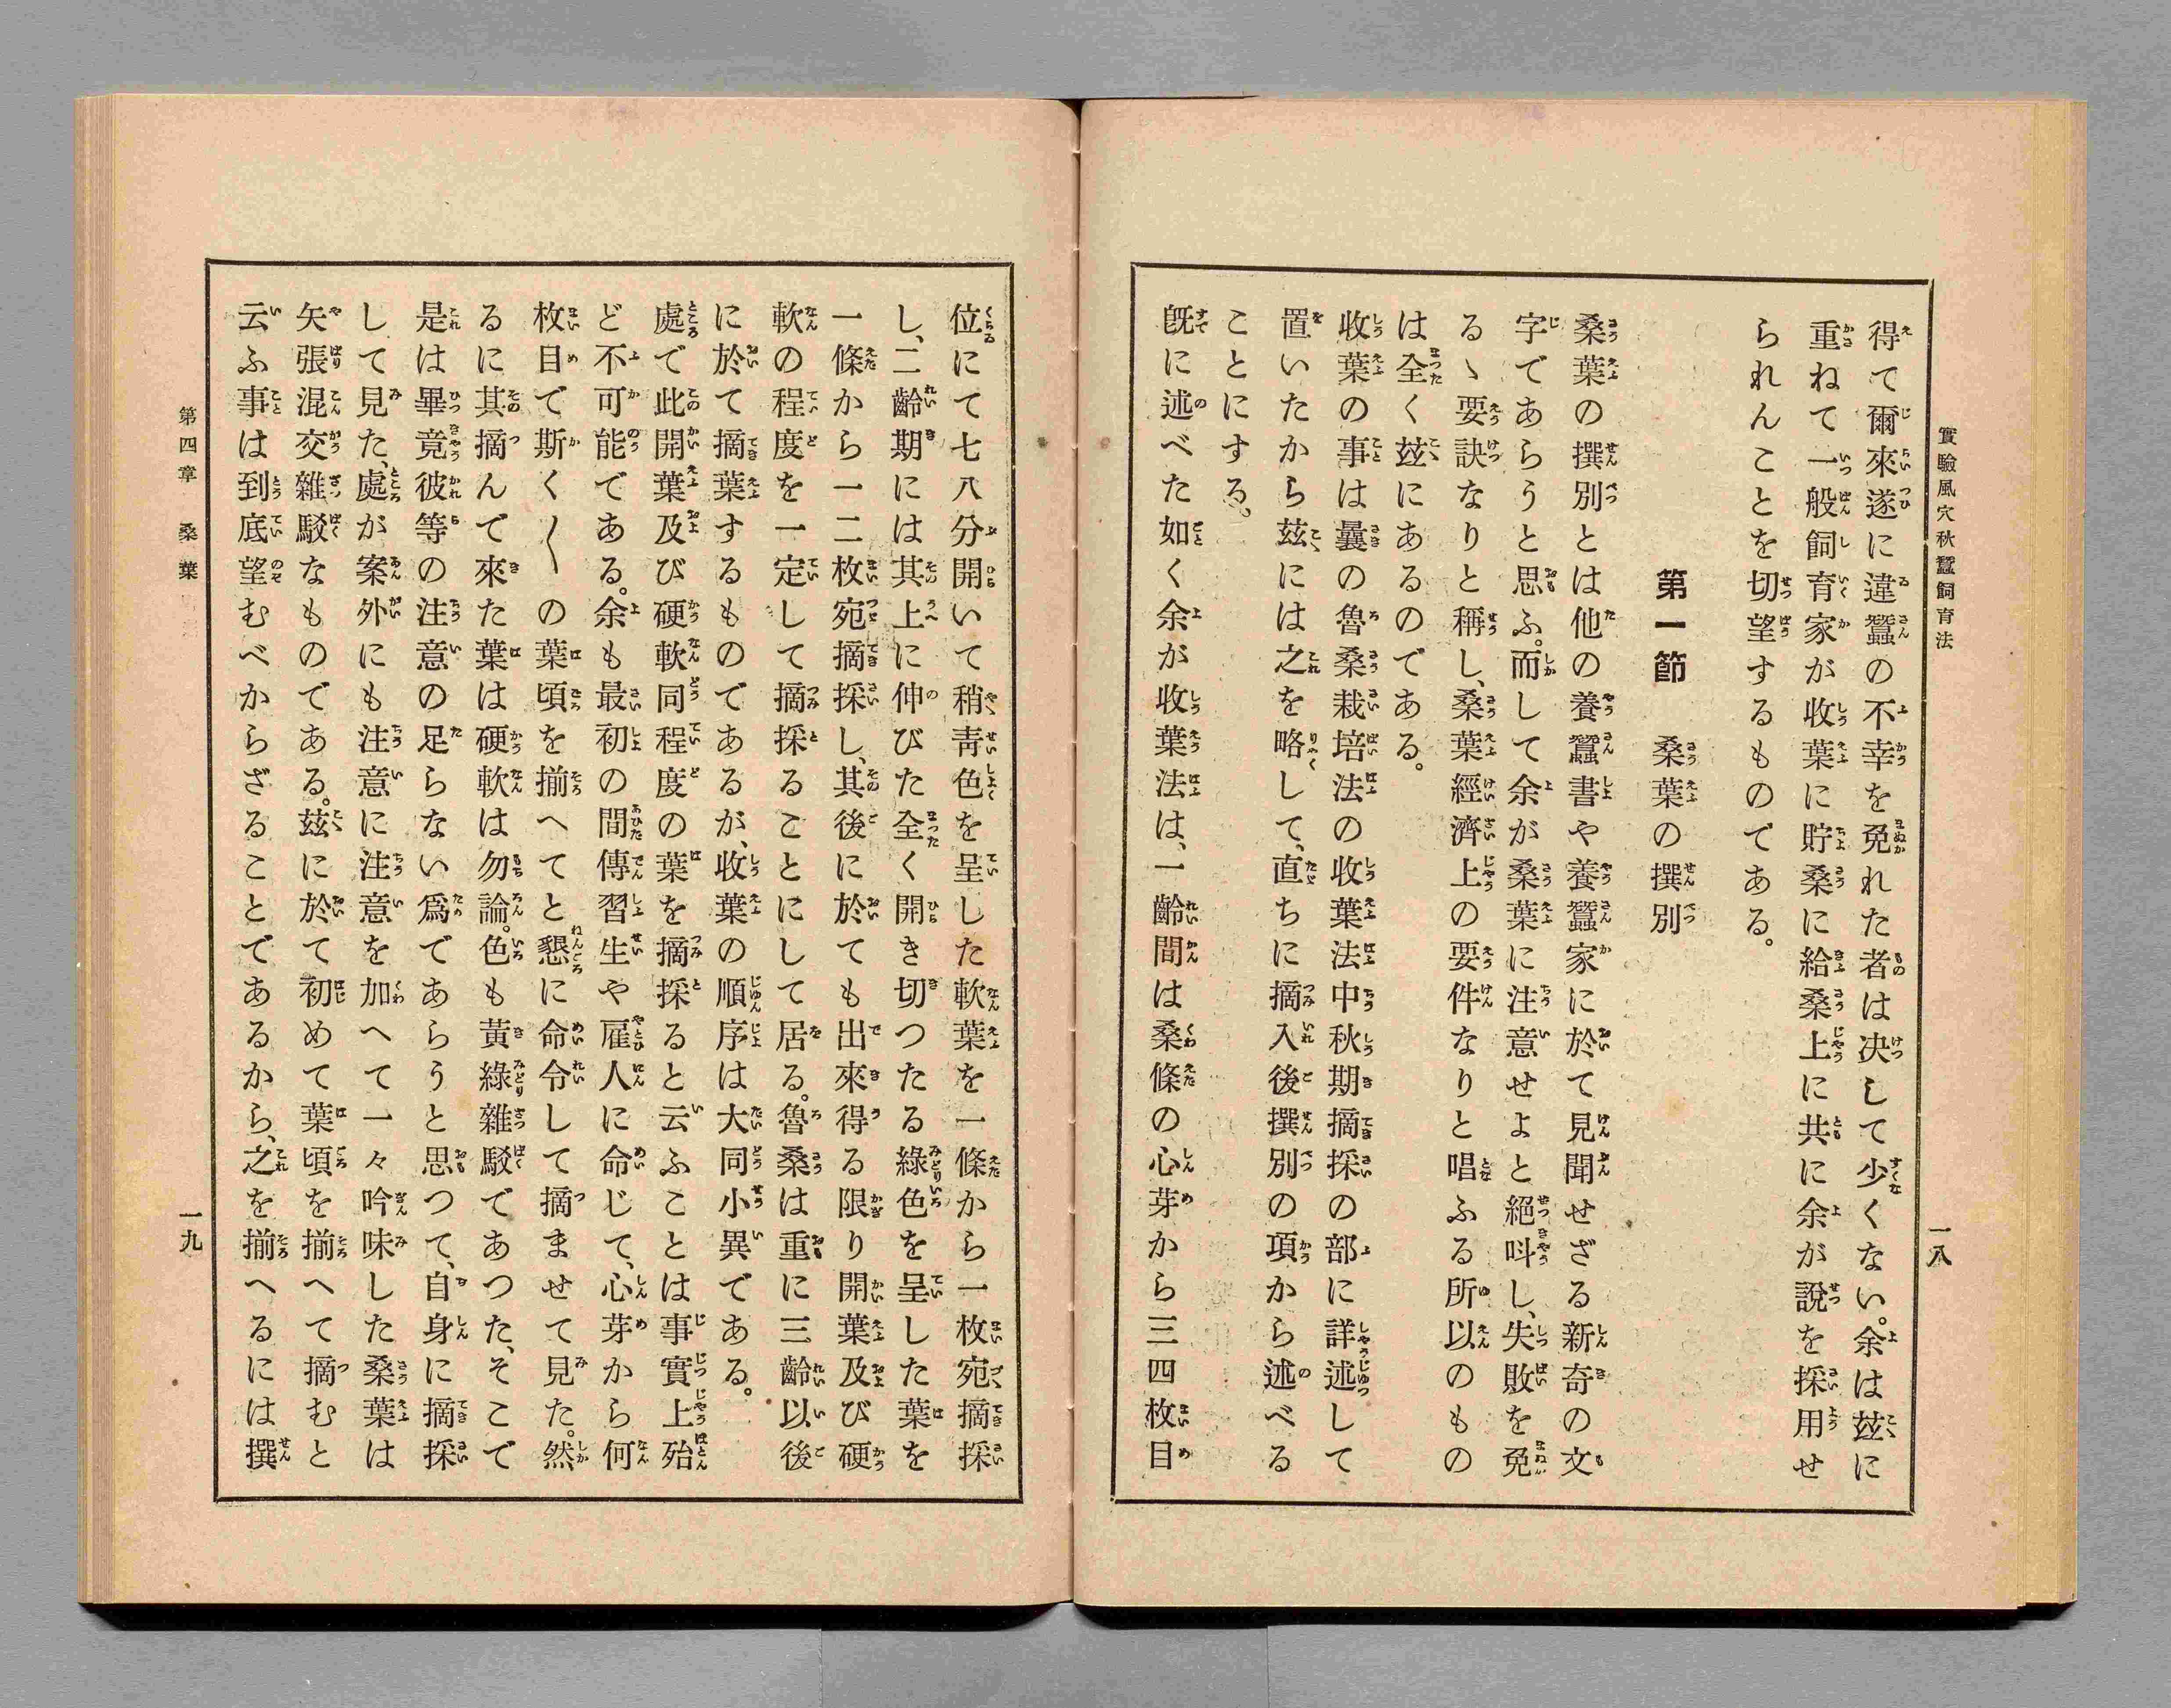 實驗風穴秋蠶飼育法
一八
得て爾來遂に違蠶の不幸を免れた者は決して少くない。余は玆に
重ねて一般飼育家が收葉に貯桑に給桑上に共に余が說を採用せ
られんことを切望するものである。
第一節 桑葉の撰別
桑葉の撰別とは他の養蠶書や養蠶家に於て見聞せざる新奇の文
字であらうと思ふ。而して余が桑葉に注意せよと絕呌し、失敗を免
るゝ要訣なりと稱し、桑葉經濟上の要件なりと唱ふる所以のもの
は全く玆にあるのである。
收葉の事は曩の魯桑栽培法の收葉法中秋期摘採の部に詳述して
置いたから玆には之を略して、直ちに摘入後撰別の項から述べる
ことにする。
旣に述べた如く余が收葉法は、一齡間は桑條の心芽から三四枚目
位にて七八分開いて稍靑色を呈した軟葉を一條から一枚宛摘採
し、二齡期には其上に伸びた全く開き切つたる綠色を呈した葉を
一條から一二枚宛摘採し、其後に於ても出來得る限り開葉及び硬
軟の程度を一定して摘採ることにして居る。魯桑は重に三齡以後
に於て摘葉するものであるが、收葉の順序は大同小異である。
處で此開葉及び硬軟同程度の葉を摘採ると云ふことは事實上殆
ど不可能である。余も最初の間傳習生や雇人に命じて、心芽から何
枚目で斯く〱の葉頃を揃へてと懇に命令して摘ませて見た。然
るに其摘んで來た葉は硬軟は勿論。色も黃綠雜駁であつた、そこで
是は畢竟彼等の注意の足らない爲であらうと思つて、自身に摘採
して見た、處が案外にも注意に注意を加へて一々吟味した桑葉は
矢張混交雜駁なものである。玆に於て初めて葉頃を揃へて摘むと
云ふ事は到底望むべからざることであるから、之を揃へるには撰
第四章 桑葉
一九